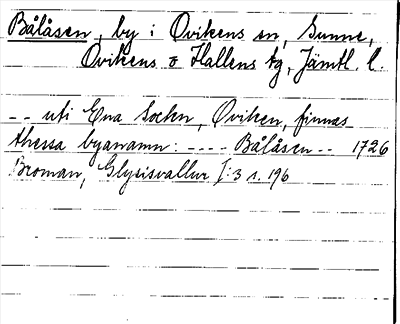 Bålåsen, by i Ovikens sn, Sunne,
Ovikens o Hallens tg, Jämtl. l.
-- uti Ena Sockn, Oviken, finnas
thessa byanamn: ---- Bålåsen -- 1726
Broman, Glysisvallur I:3 s. 196